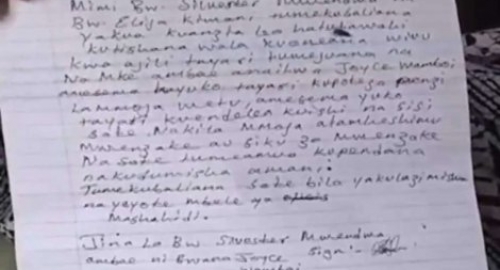 Mimi Bw. Silvester Mwendwa na
Bw. Elija Kimani tumekubaliana
yakwa kuanzia leo hatutawahi
kutishana wala kuoneana wivu
kwa ajili tayari tumejuana na
Na Mke ambae anaitwa Joyce Wambui
amesema hayuko tayari kupoteza penzi
La mmoja wetu, amesema yuko
tayari kuendelea kuishi na sisi
sote. Na kila mmoja atamheshimu
Mwenzake au siku za Mwenzake
Na sote tumeamua kupendana
na kudumisha amani.
Tumekubaliana sote bila ya kulazimishwa
na yeyote mbele ya
Mashahidi.
Jina La Bw Silvester Mwendwa
ambae ni Bwana Joyce sign:-